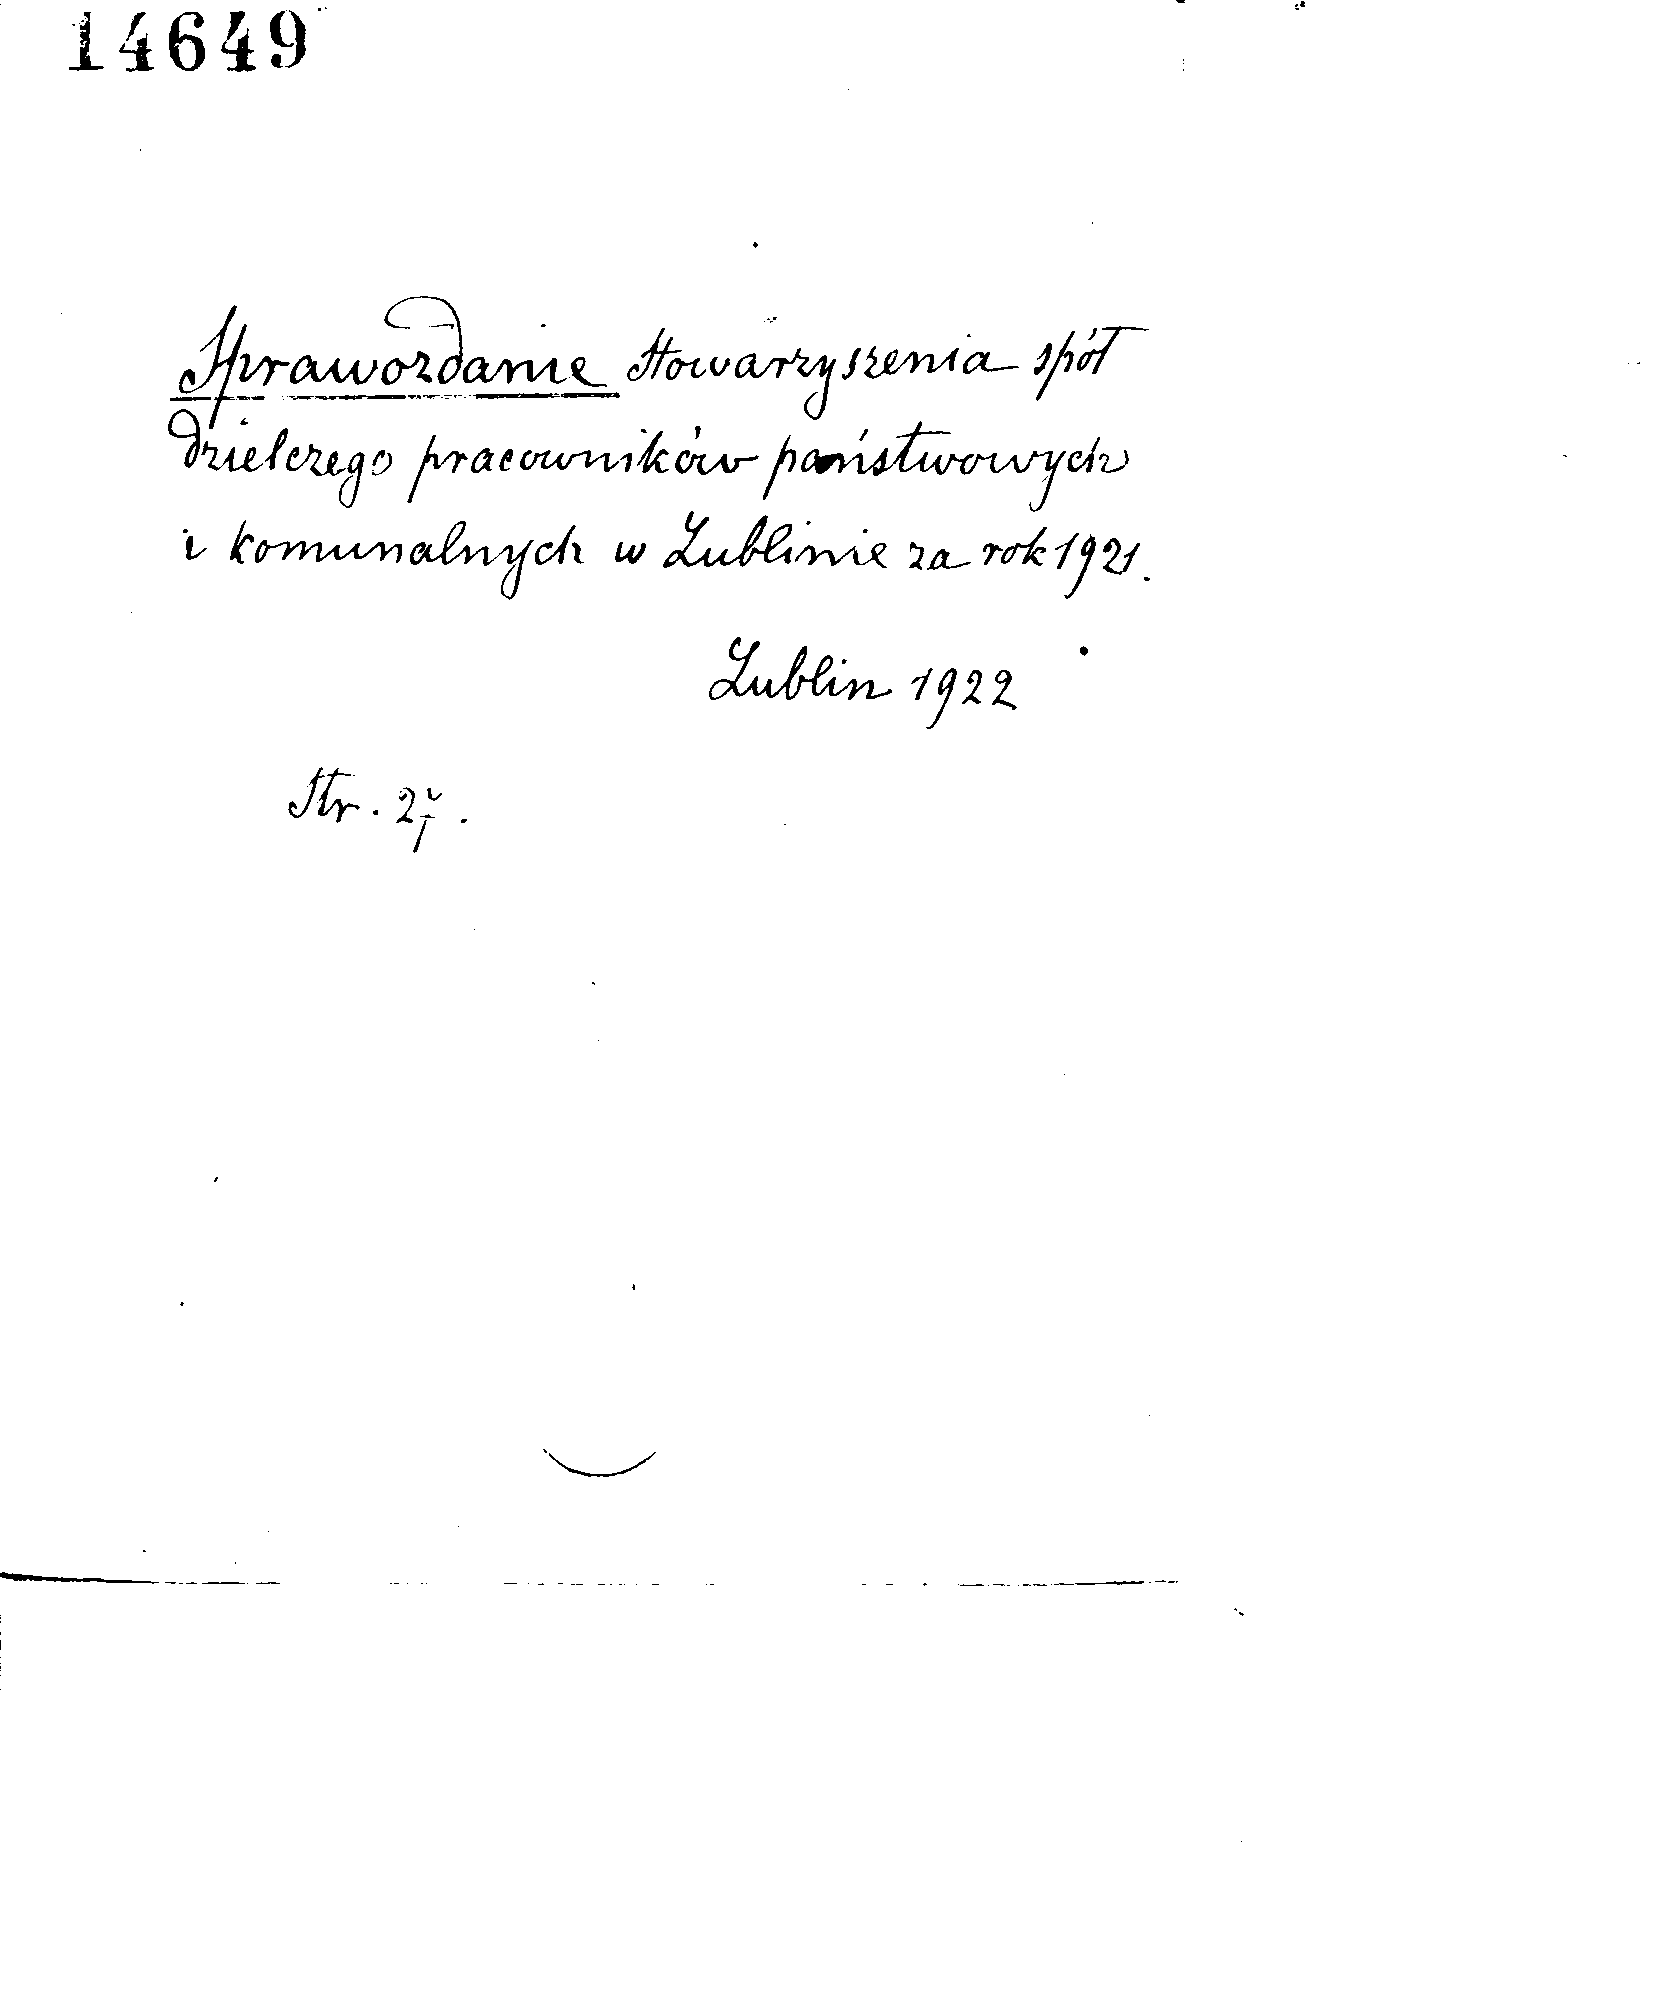 14649
Sprawozdanie Stowarzyszenia spół
dzielczego pracowników państwowych
i komunalnych w Lublinie za rok 1921.
Lublin 1922
Str. 27.